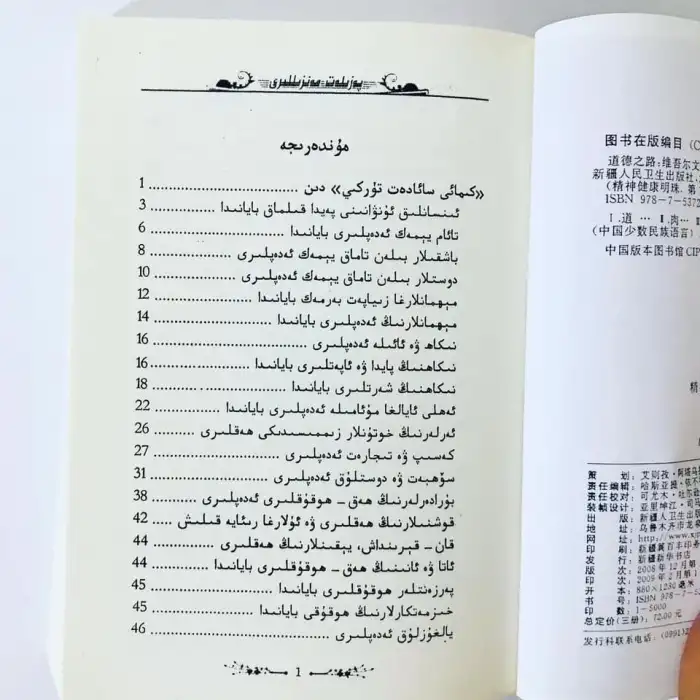 پەزىلەت مەنزىللىرى
مۇندەرىجە
«كىمىائى سائادەت تۈركى» دىن ........ 1
ئىنسانلىق ئۇنۋانىنى پەيدا قىلماق بايانىدا ........ 3
تائام يېمەك ئەدەپلىرى بايانىدا ........ 6
باشقىلار بىلەن تاماق يېمەك ئەدەپلىرى ........ 8
دوستلار بىلەن تاماق يېمەك ئەدەپلىرى ........ 10
مېھمانلارغا زىياپەت بەرمەك بايانىدا ........ 12
مېھمانلارنىڭ ئەدەپلىرى بايانىدا ........ 14
نىكاھ ۋە ئائىلە ئەدەپلىرى ........ 16
نىكاھنىڭ پايدا ۋە ئاپەتلىرى بايانىدا ........ 16
نىكاھنىڭ شەرتلىرى بايانىدا ........ 18
ئەھلى ئايالغا مۇئامىلە ئەدەپلىرى بايانىدا ........ 22
ئەرلەرنىڭ خوتۇنلار زىممىسىدىكى ھەقلىرى ........ 26
كەسىپ ۋە تىجارەت ئەدەپلىرى ........ 27
سۆھبەت ۋە دوستلۇق ئەدەپلىرى ........ 31
بۇرادەرلەرنىڭ ھەق - ھوقۇقلىرى ئەدەپلىرى ........ 38
قوشنىلارنىڭ ھەقلىرى ۋە ئۇلارغا رىئايە قىلىش ........ 42
قان - قېرىنداش، يېقىنلارنىڭ ھەقلىرى ........ 44
ئاتا ۋە ئانىنىڭ ھەق - ھوقۇقلىرى ........ 44
پەرزەنتلەر ھوقۇقلىرى بايانىدا ........ 45
خىزمەتكارلارنىڭ ھوقۇقى بايانىدا ........ 45
يالغۇزلۇق ئەدەپلىرى ........ 46
1
图书在版编目 (C
道德之路:维吾尔文
新疆人民卫生出版社,
(精神健康明珠.第
ISBN 978-7-5372
Ⅰ.道… Ⅱ.肉…
(中国少数民族语言)
中国版本图书馆CIP
精
策 划: 艾则孜·阿塔乌
责任编辑: 哈斯亚提·依不
责任校对: 可尤木·吐尔
装帧设计: 亚里坤江·司马
出 版: 新疆人民卫生出版
地 址: 乌鲁木齐市龙
网 址: http://www.xj
印 刷: 新疆翼百丰印务
发 行: 新疆新华书店
版 次: 2008年12月第
印 次: 2009年2月第1
开 本: 880×1230毫米
书 号: ISBN 978-7-5
印 数: 1-5000
总定价(三册): 72.00元
发行科联系电话: (0991)32